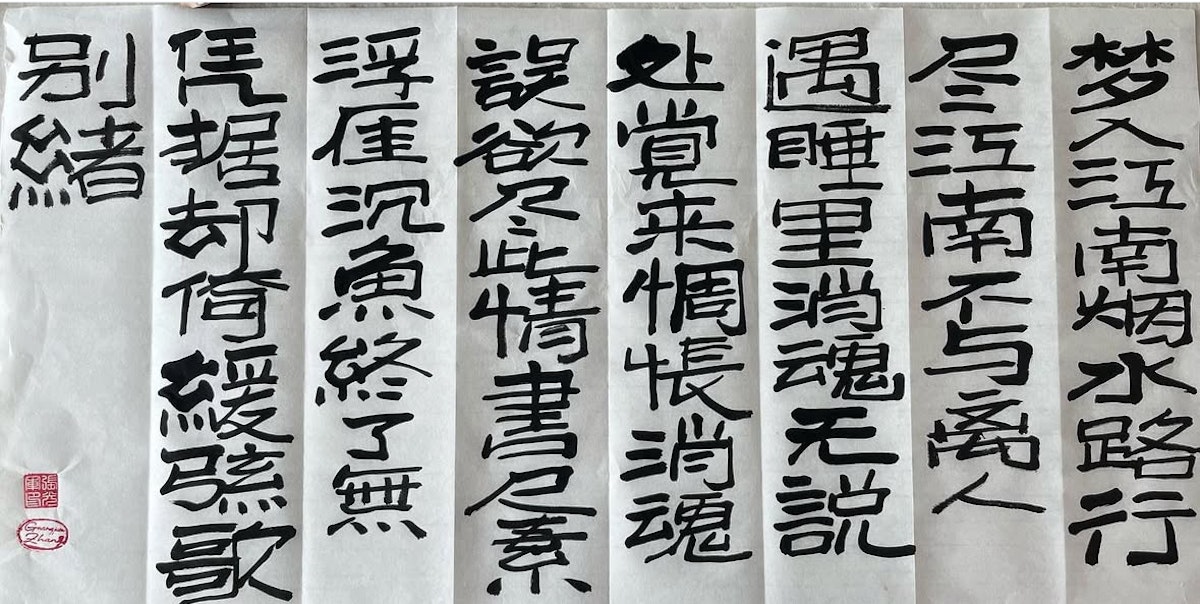 梦入江南烟水路行
尽江南不与离人
遇睡里消魂无説
处覚来惆怅消魂
誤欲尽此情書尺素
浮雁沉魚終了無
凭据却倚緩弦歌
别緒
Zhang